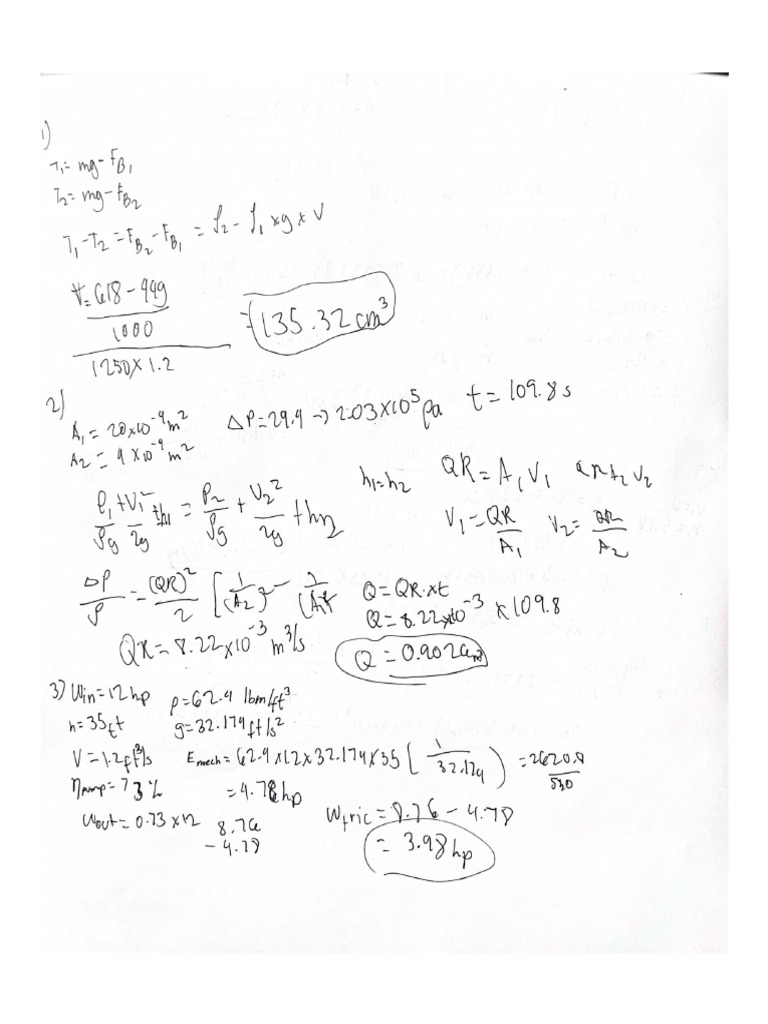 1)
T₁= mg - F_B₁
T₂= mg - F_B₂
T₁-T₂ = F_B₂ - F_B₁ = ρ₂ - ρ₁ × g × V
V= 618 - 499
1000
1250 × 1.2
= 135.32 cm³
2)
A₁ = 20×10⁻⁴ m²
A₂ = 4×10⁻⁴ m²
ΔP = 29.4 → 2.03×10⁵ pa
t = 109.8 s
P₁/ρg + V₁²/2g + h₁ = P₂/ρg + V₂²/2g + h₂
h₁=h₂
QR = A₁V₁ or A₂V₂
V₁ = QR/A₁ V₂ = QR/A₂
ΔP/ρ = (QR)²/2 [1/(A₂)²
Q = QR·xt
Q = 8.22×10⁻³ × 109.8
QR = 8.22×10⁻³ m³/s
Q = 0.902
3) Win = 12 hp
ρ = 62.4 lbm/ft³
h = 35 ft
g = 32.174 ft/s²
V = 1.2 ft³/s
E mech = 62.4 × 1.2 × 32.174 × 35 (1/32.174) = 2620.8/550
η pump = 73%
= 4.76 hp
Wout = 0.73 × 12
8.76
- 4.78
Wfric = 8.76 - 4.78
= 3.98 hp